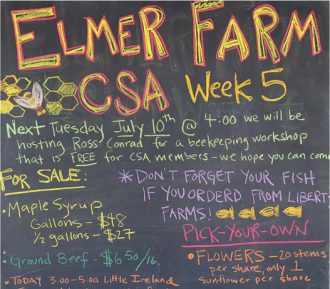 ELMER FARM
CSA WEEK 5
NEXT TUESDAY JULY 10TH @ 4:00 WE WILL BE
HOSTING ROSS CONRAD FOR A BEEKEEPING WORKSHOP
THAT IS FREE FOR CSA MEMBERS - WE HOPE YOU CAN COME
FOR SALE:
• MAPLE SYRUP
GALLONS - $48
½ GALLONS - $27
• GROUND BEEF - $6.50/LB.
• TODAY 3:00-5:00 LITTLE IRELAND
* DON'T FORGET YOUR FISH
IF YOU ORDERD FROM LIBERT
FARMS!
PICK-YOUR-OWN
• FLOWERS - 20 STEMS
PER SHARE, ONLY 1
SUNFLOWER PER SHARE